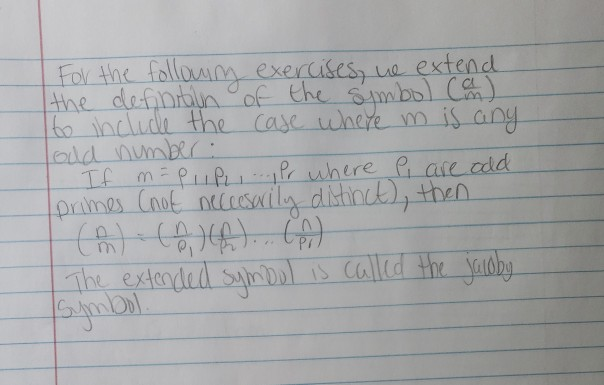 For the following exercises, we extend
the definitoin of the symbol (a/m)
to include the case where m is any
odd number:
If m = p₁, p₂, ..., pᵣ where pᵢ are odd
primes (not neccesarily distinct), then
(n/m) = (n/p₁)(n/p₂)...(n/pᵣ)
The extended symbol is called the jacoby
symbol.